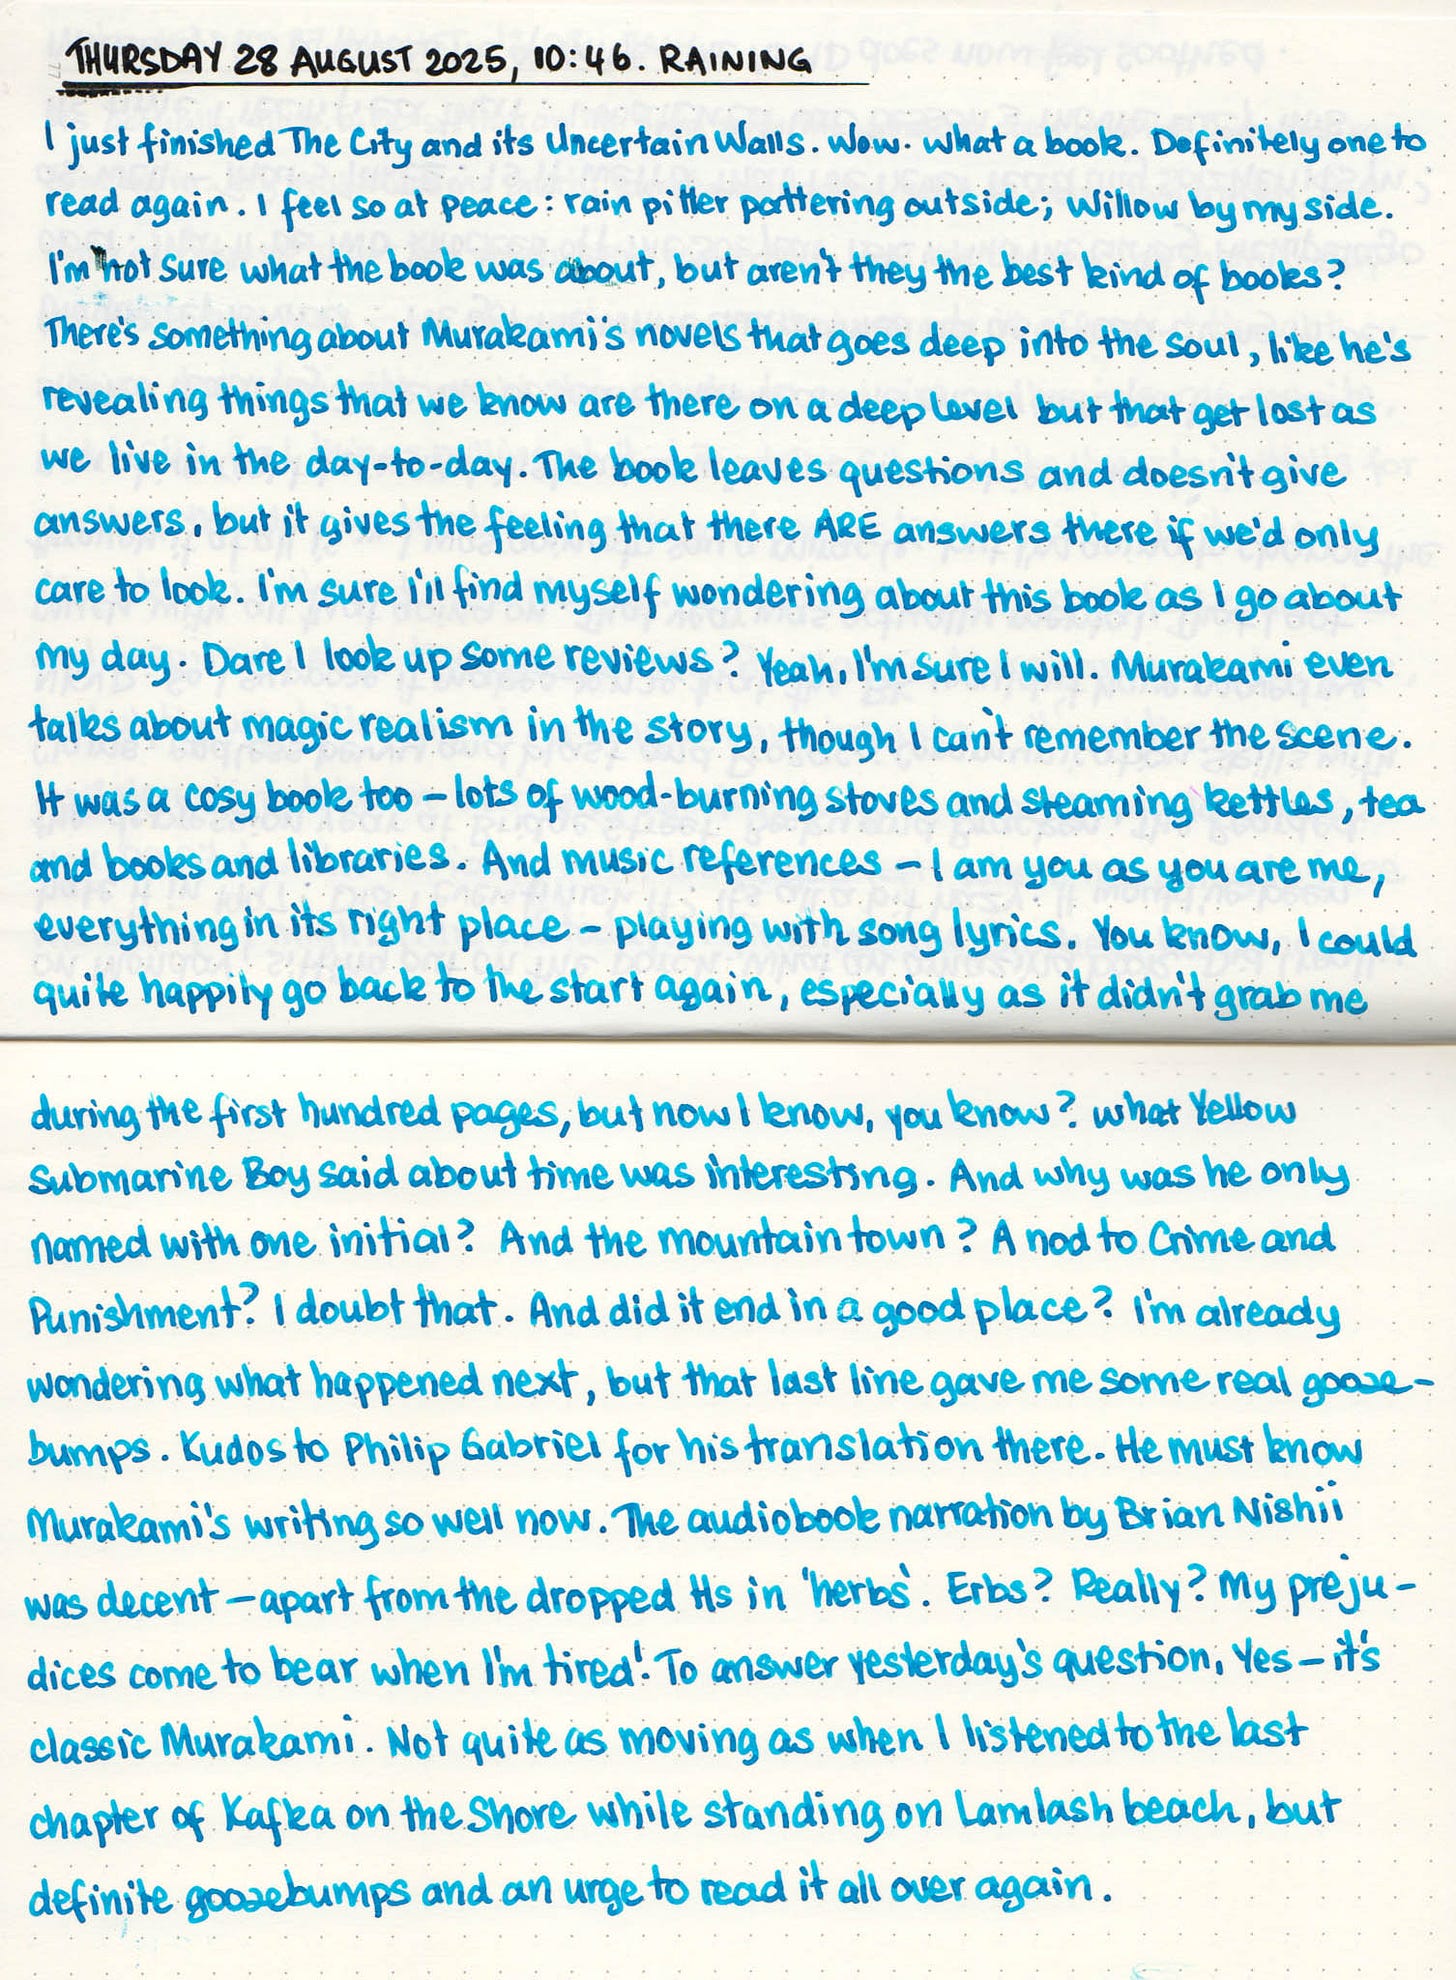 THURSDAY 28 AUGUST 2025, 10:46. RAINING
I just finished The City and its Uncertain Walls. Wow. What a book. Definitely one to
read again. I feel so at peace: rain pitter pattering outside; Willow by my side.
I'm not sure what the book was about, but aren't they the best kind of books?
There's something about Murakami's novels that goes deep into the soul, like he's
revealing things that we know are there on a deep level but that get lost as
we live in the day-to-day. The book leaves questions and doesn't give
answers, but it gives the feeling that there ARE answers there if we'd only
care to look. I'm sure I'll find myself wondering about this book as I go about
my day. Dare I look up some reviews? Yeah, I'm sure I will. Murakami even
talks about magic realism in the story, though I can't remember the scene.
It was a cosy book too – lots of wood-burning stoves and steaming kettles, tea
and books and libraries. And music references – I am you as you are me,
everything in its right place – playing with song lyrics. You know, I could
quite happily go back to the start again, especially as it didn't grab me
during the first hundred pages, but now I know, you know? What Yellow
Submarine Boy said about time was interesting. And why was he only
named with one initial? And the mountain town? A nod to Crime and
Punishment? I doubt that. And did it end in a good place? I'm already
wondering what happened next, but that last line gave me some real gooze-
bumps. Kudos to Philip Gabriel for his translation there. He must know
Murakami's writing so well now. The audiobook narration by Brian Nishii
was decent – apart from the dropped Hs in 'herbs'. Erbs? Really? My preju-
dices come to bear when I'm tired! To answer yesterday's question, Yes – it's
classic Murakami. Not quite as moving as when I listened to the last
chapter of Kafka on the Shore while standing on Lamlash beach, but
definite goozebumps and an urge to read it all over again.